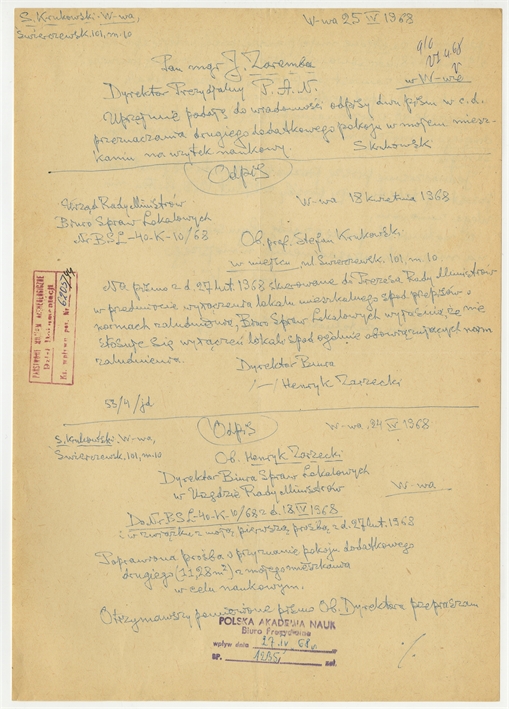 S. Krukowski-W-wa,
Świerczewsk. 101, m. 10
W-wa 25 IV 1968
Pan mgr J. Zaremba
w W-wie
Dyrektor Prezydjalny P.A.N.
Uprzejmie podaję do wiadomości odpisy dwu pism w c.d.
przeznaczania drugiego dodatkowego pokoju w mojem miesz-
kaniu na użytek naukowy. S Krukowski
Odpis
Urząd Rady Ministrów
Biuro Spraw Lokalowych
Nr BSL-40-K-10/68
W-wa 18 kwietnia 1968
Ob. prof. Stefan Krukowski
w miejscu, ul. Świerczewsk. 101, m. 10
Na pismo z d. 27 lut 1968 skierowane do Prezesa Rady Ministrów
w przedmiocie wyłączenia lokalu mieszkalnego spod przepisów o
normach zaludnienia, Biuro Spraw Lokalowych wyjaśnia, że nie
stosuje się wyłączeń lokali spod ogólnie obowiązujących norm
zaludnienia.
Dyrektor Biura
/—/ Henryk Zarzecki
55/4/jd
PAŃSTWOWE MUZEUM ARCHEOLOGICZNE
Dział Dokumentacji
Odpis
S. Krukowski, W-wa,
Świerczewsk. 101, m. 10
W-wa, 24 IV 1968
Ob. Henryk Zarzecki
Dyrektor Biura Spraw Lokalowych
w Urzędzie Rady Ministrów
W-wa
Do Nr BSL-40-K-10/68 z d. 18 IV 1968
i w związku z moją pierwszą prośbą z d. 27 lut. 1968
Poprawiona prośba o przyznanie pokoju dodatkowego
drugiego (11,28 m²) z mojego mieszkania
w celu naukowym.
Otrzymawszy pomienione pismo Ob. Dyrektora przepraszam
POLSKA AKADEMIA NAUK
Biuro Prezydialne
wpływ dnia 27. IV.
BP. zał.